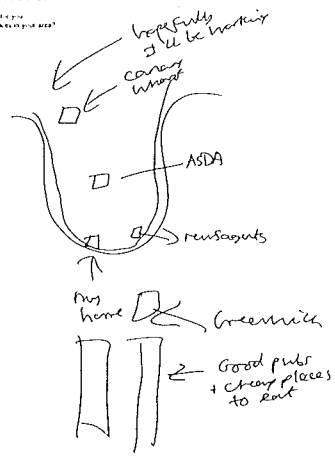 hopefully
I'll be working
canary
wharf
ASDA
newsagents
my
home
Greenwich
Good pubs
+ cheap places
to eat